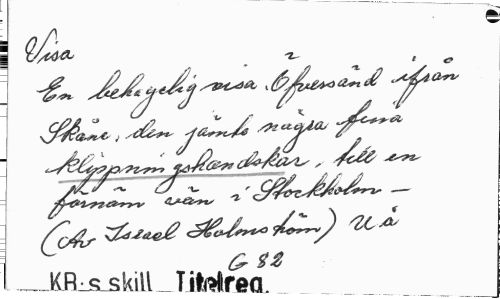 Visa
En behagelig visa. Öfversänd ifrån
Skåne, den jämte några fina
klippningshandskar, till en
förnäm vän i Stockholm –
(Av Israel Holmström) U å
G 82
KB:s skill. Titelreg.